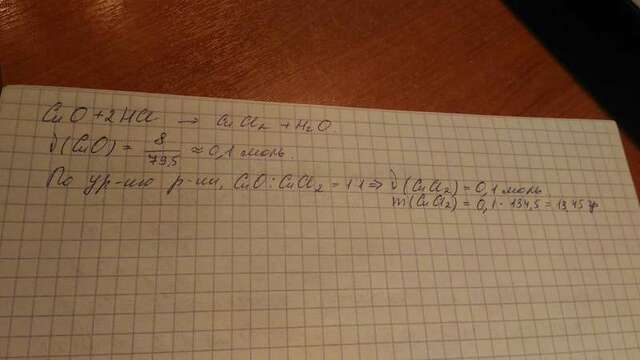 CuO + 2HCl → CuCl₂ + H₂O
ν(CuO) = 8/79,5 ≈ 0,1 моль.
По ур-нию р-ии, CuO : CuCl₂ = 1:1 ⇒ ν(CuCl₂) = 0,1 моль
m(CuCl₂) = 0,1 · 134,5 = 13,45 гр